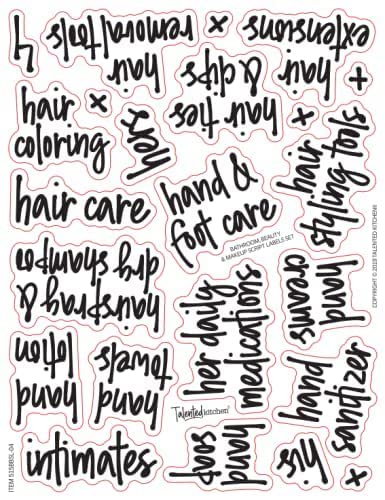 hair
removal tools
x
hair
extensions
+
hair
coloring
x
hers
hair ties
& clips
x
hair
styling tools
hair care
hand &
foot care
BATHROOM, BEAUTY
& MAKEUP SCRIPT LABELS SET
hairspray &
dry shampoo
her daily
medications
hand
creams
hand
lotion
hand
towels
Talented kitchen
hand
soap
hand
sanitizer
his
x
intimates